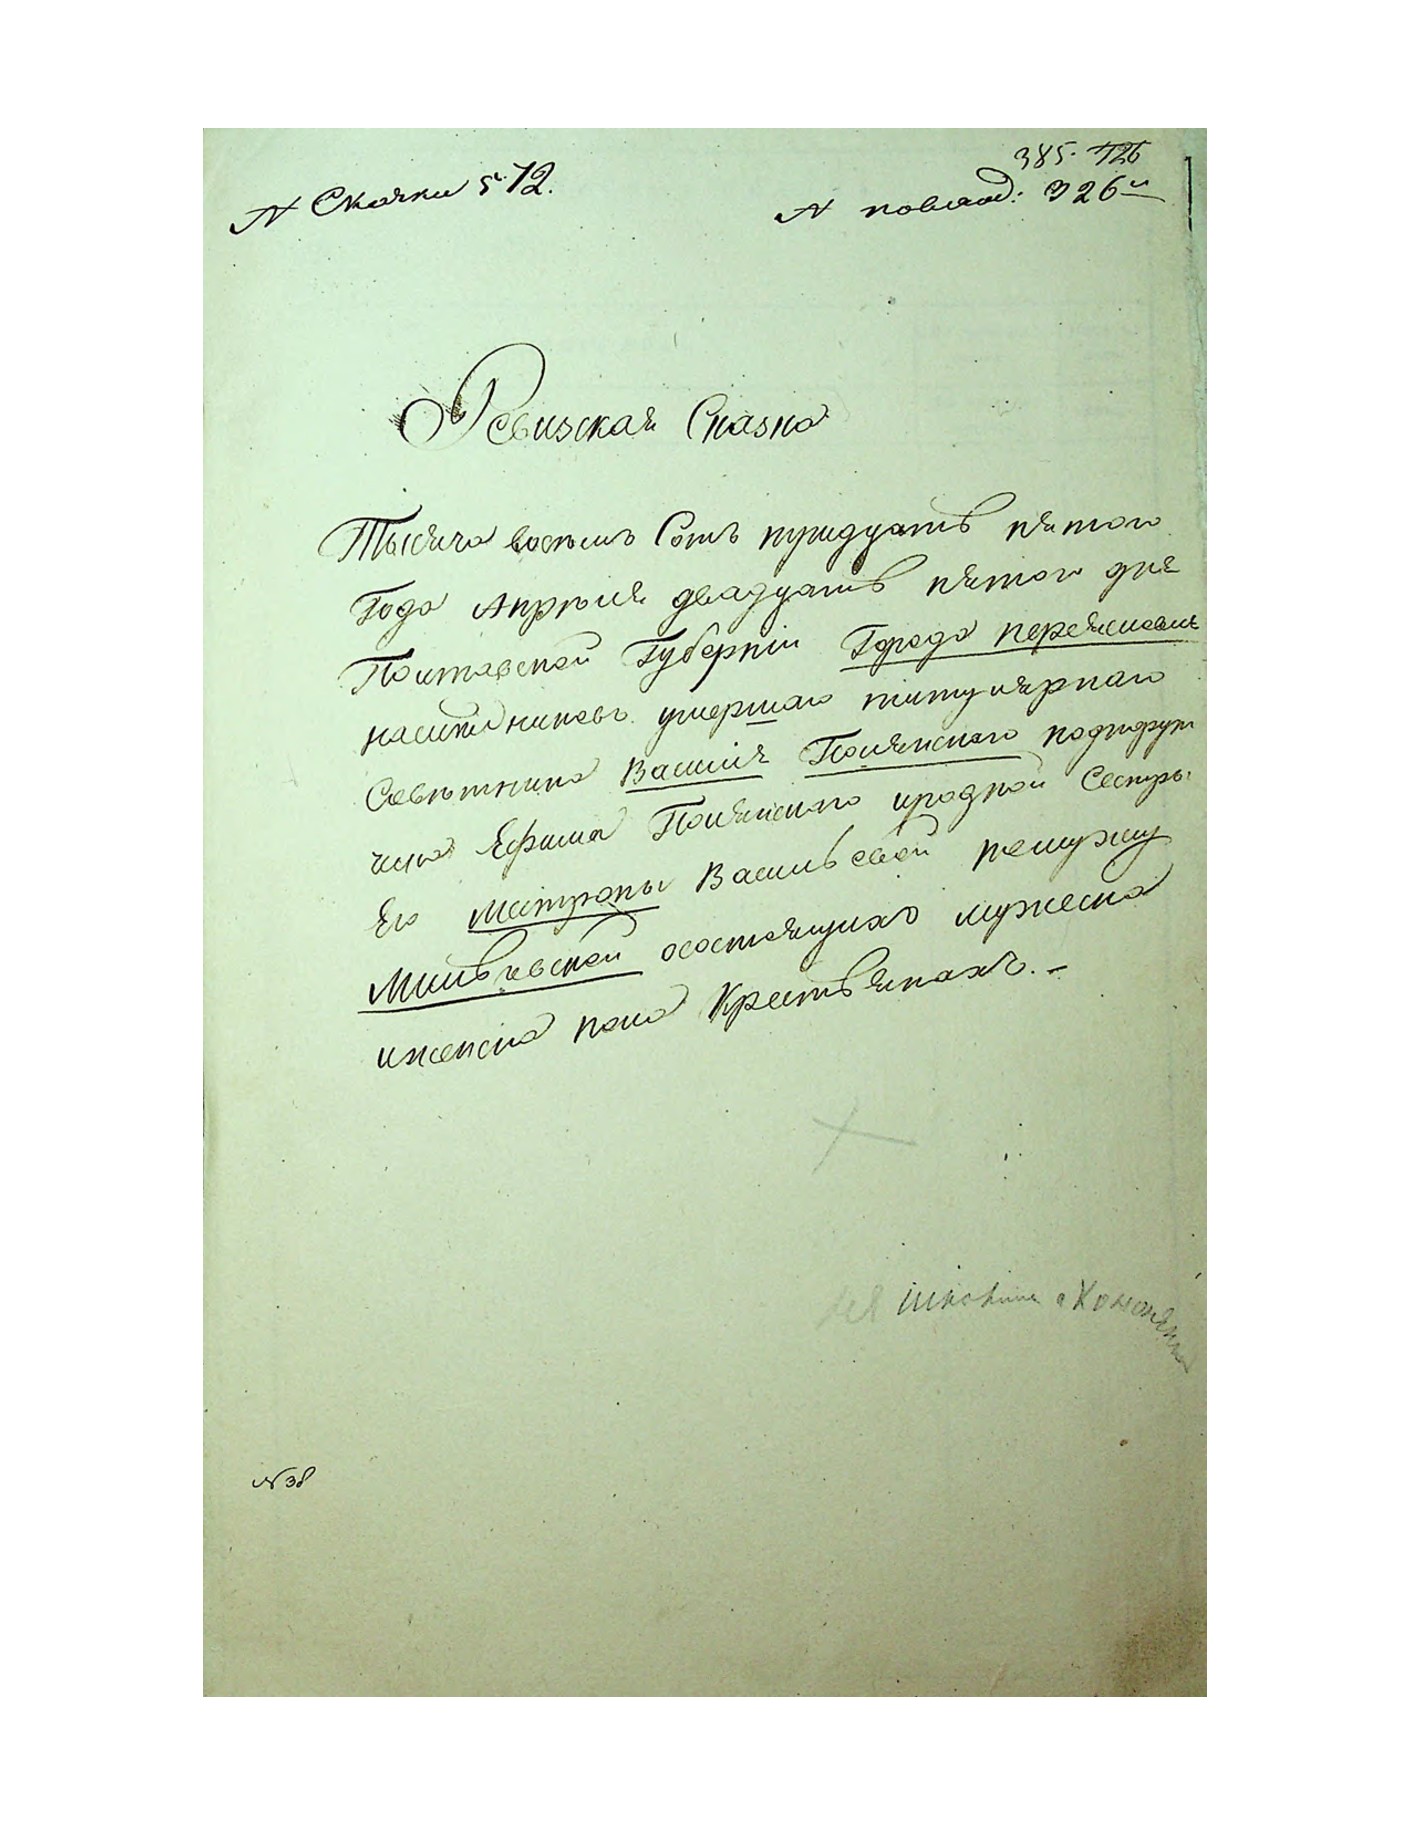 385. 126
N Сказки 5. 12.
N повлад: 326й
Ревизская Сказка
Тысяча восемь Сотъ тридцать пятого
Года Апреля двадцать пятого дня
Полтавской Губерніи Города переяслава
наследниковъ умершаго титулярнаго
Советника Василія Полянского подпорут
чика Ефима Полянского иродной Сестры
Его Матроны Васильевой помужу
осостоящихъ мужеска
иженска пола Крестьянахъ. –
N 38